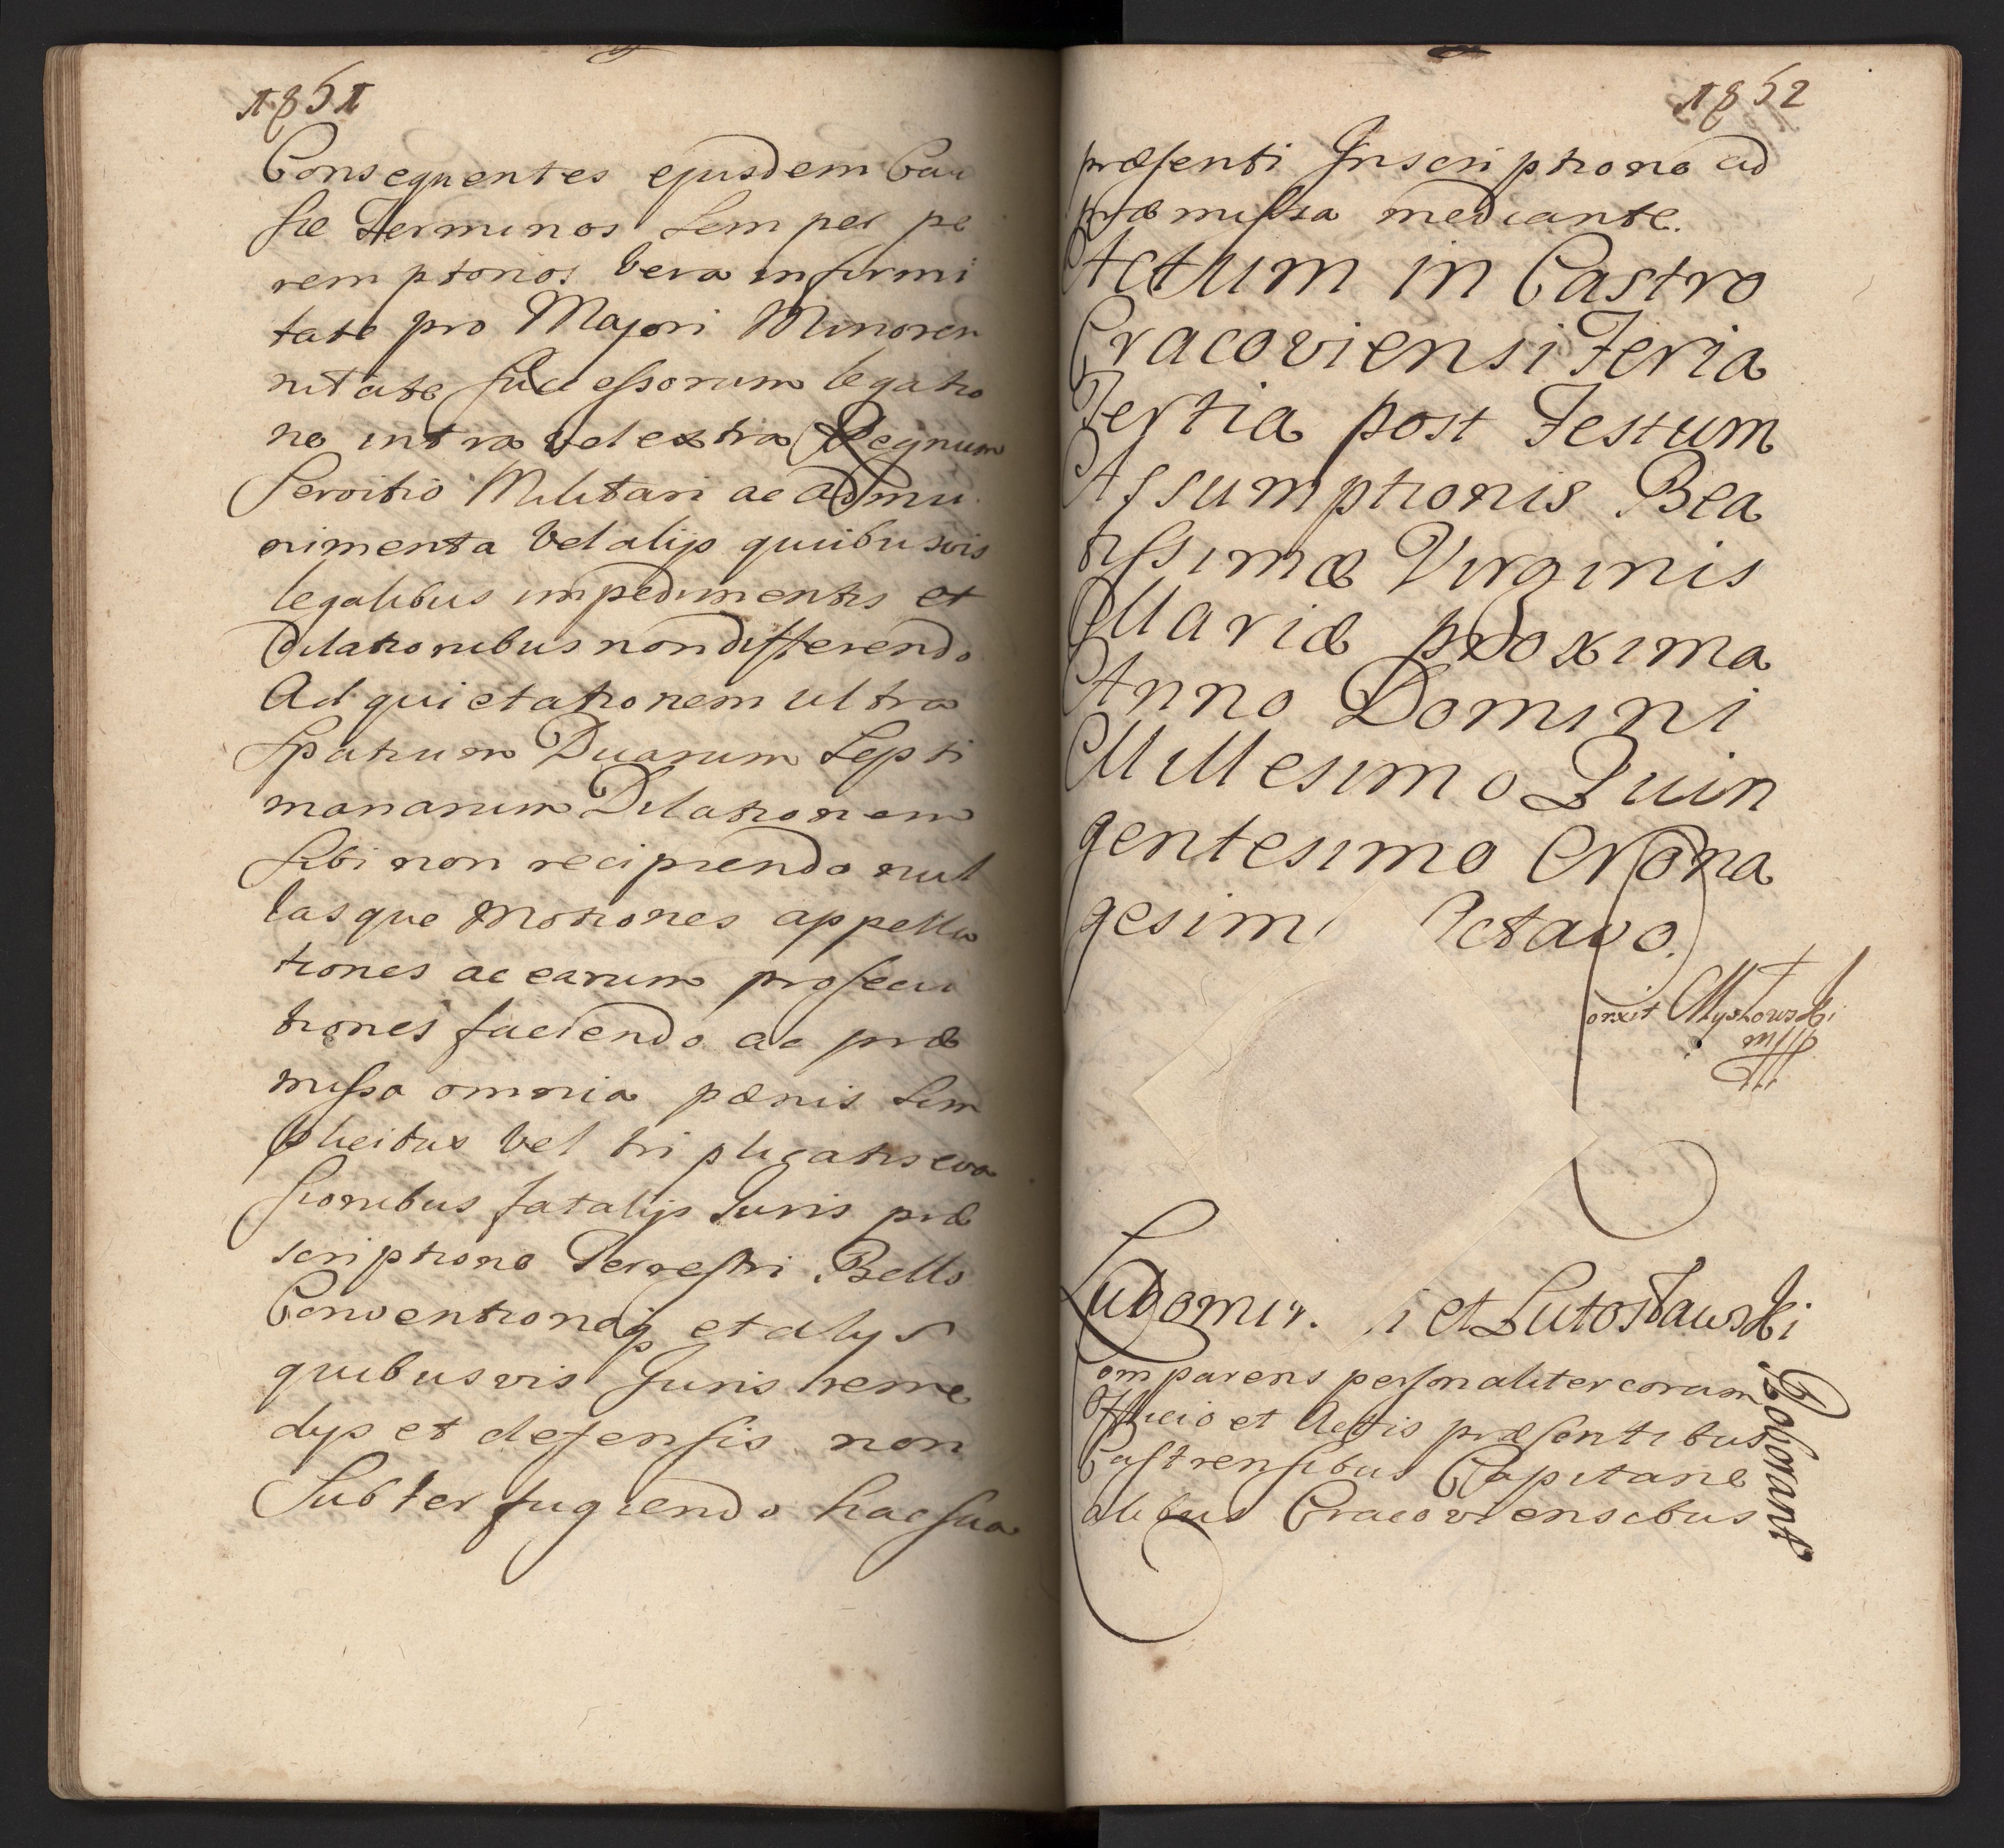 1851
Consequentes ejusdem Cau
sæ Terminos semper pe
remptorios vera infirmi
tate pro Majori Minoren
nitate successorum legatio
ne intra vel extra Regnum
servitio Militari ac ad mu
nimenta vel alijs quibusvis
legalibus impedimentis et
Dilationibus non differendo
Ad quietationem ultra
spatium Duarum septi
manarum Dilationem
sibi non recipiendo nul
lasque motiones appella
tiones ac earum prosecu
tiones faciendo ac præ
missa omnia pænis sim
plicibus vel triplicatis eva
sionibus fatalijs Juris præ
scriptione Terrestri Bello
Conventioneq et alijs
quibusvis Juris reme
dijs et defensis non
subter fugiendo hac sua
1852
præsenti Inscriptione ad
præmissa mediante.
Actum in Castro
Cracoviensi Feria
Tertia post Festum
Assumptionis Bea
tissimæ Virginis
Mariæ proxima
Anno Domini
Millesimo Quin
gentesimo Nona
gesim Octavo.
orxit Myszkowski
mpp
Ludomir i et Lutosławski
Comparens personaliter coram
Officio et Actis præsentibus
Castrensibus Capitane
alibus Cracoviensibus
Roborant